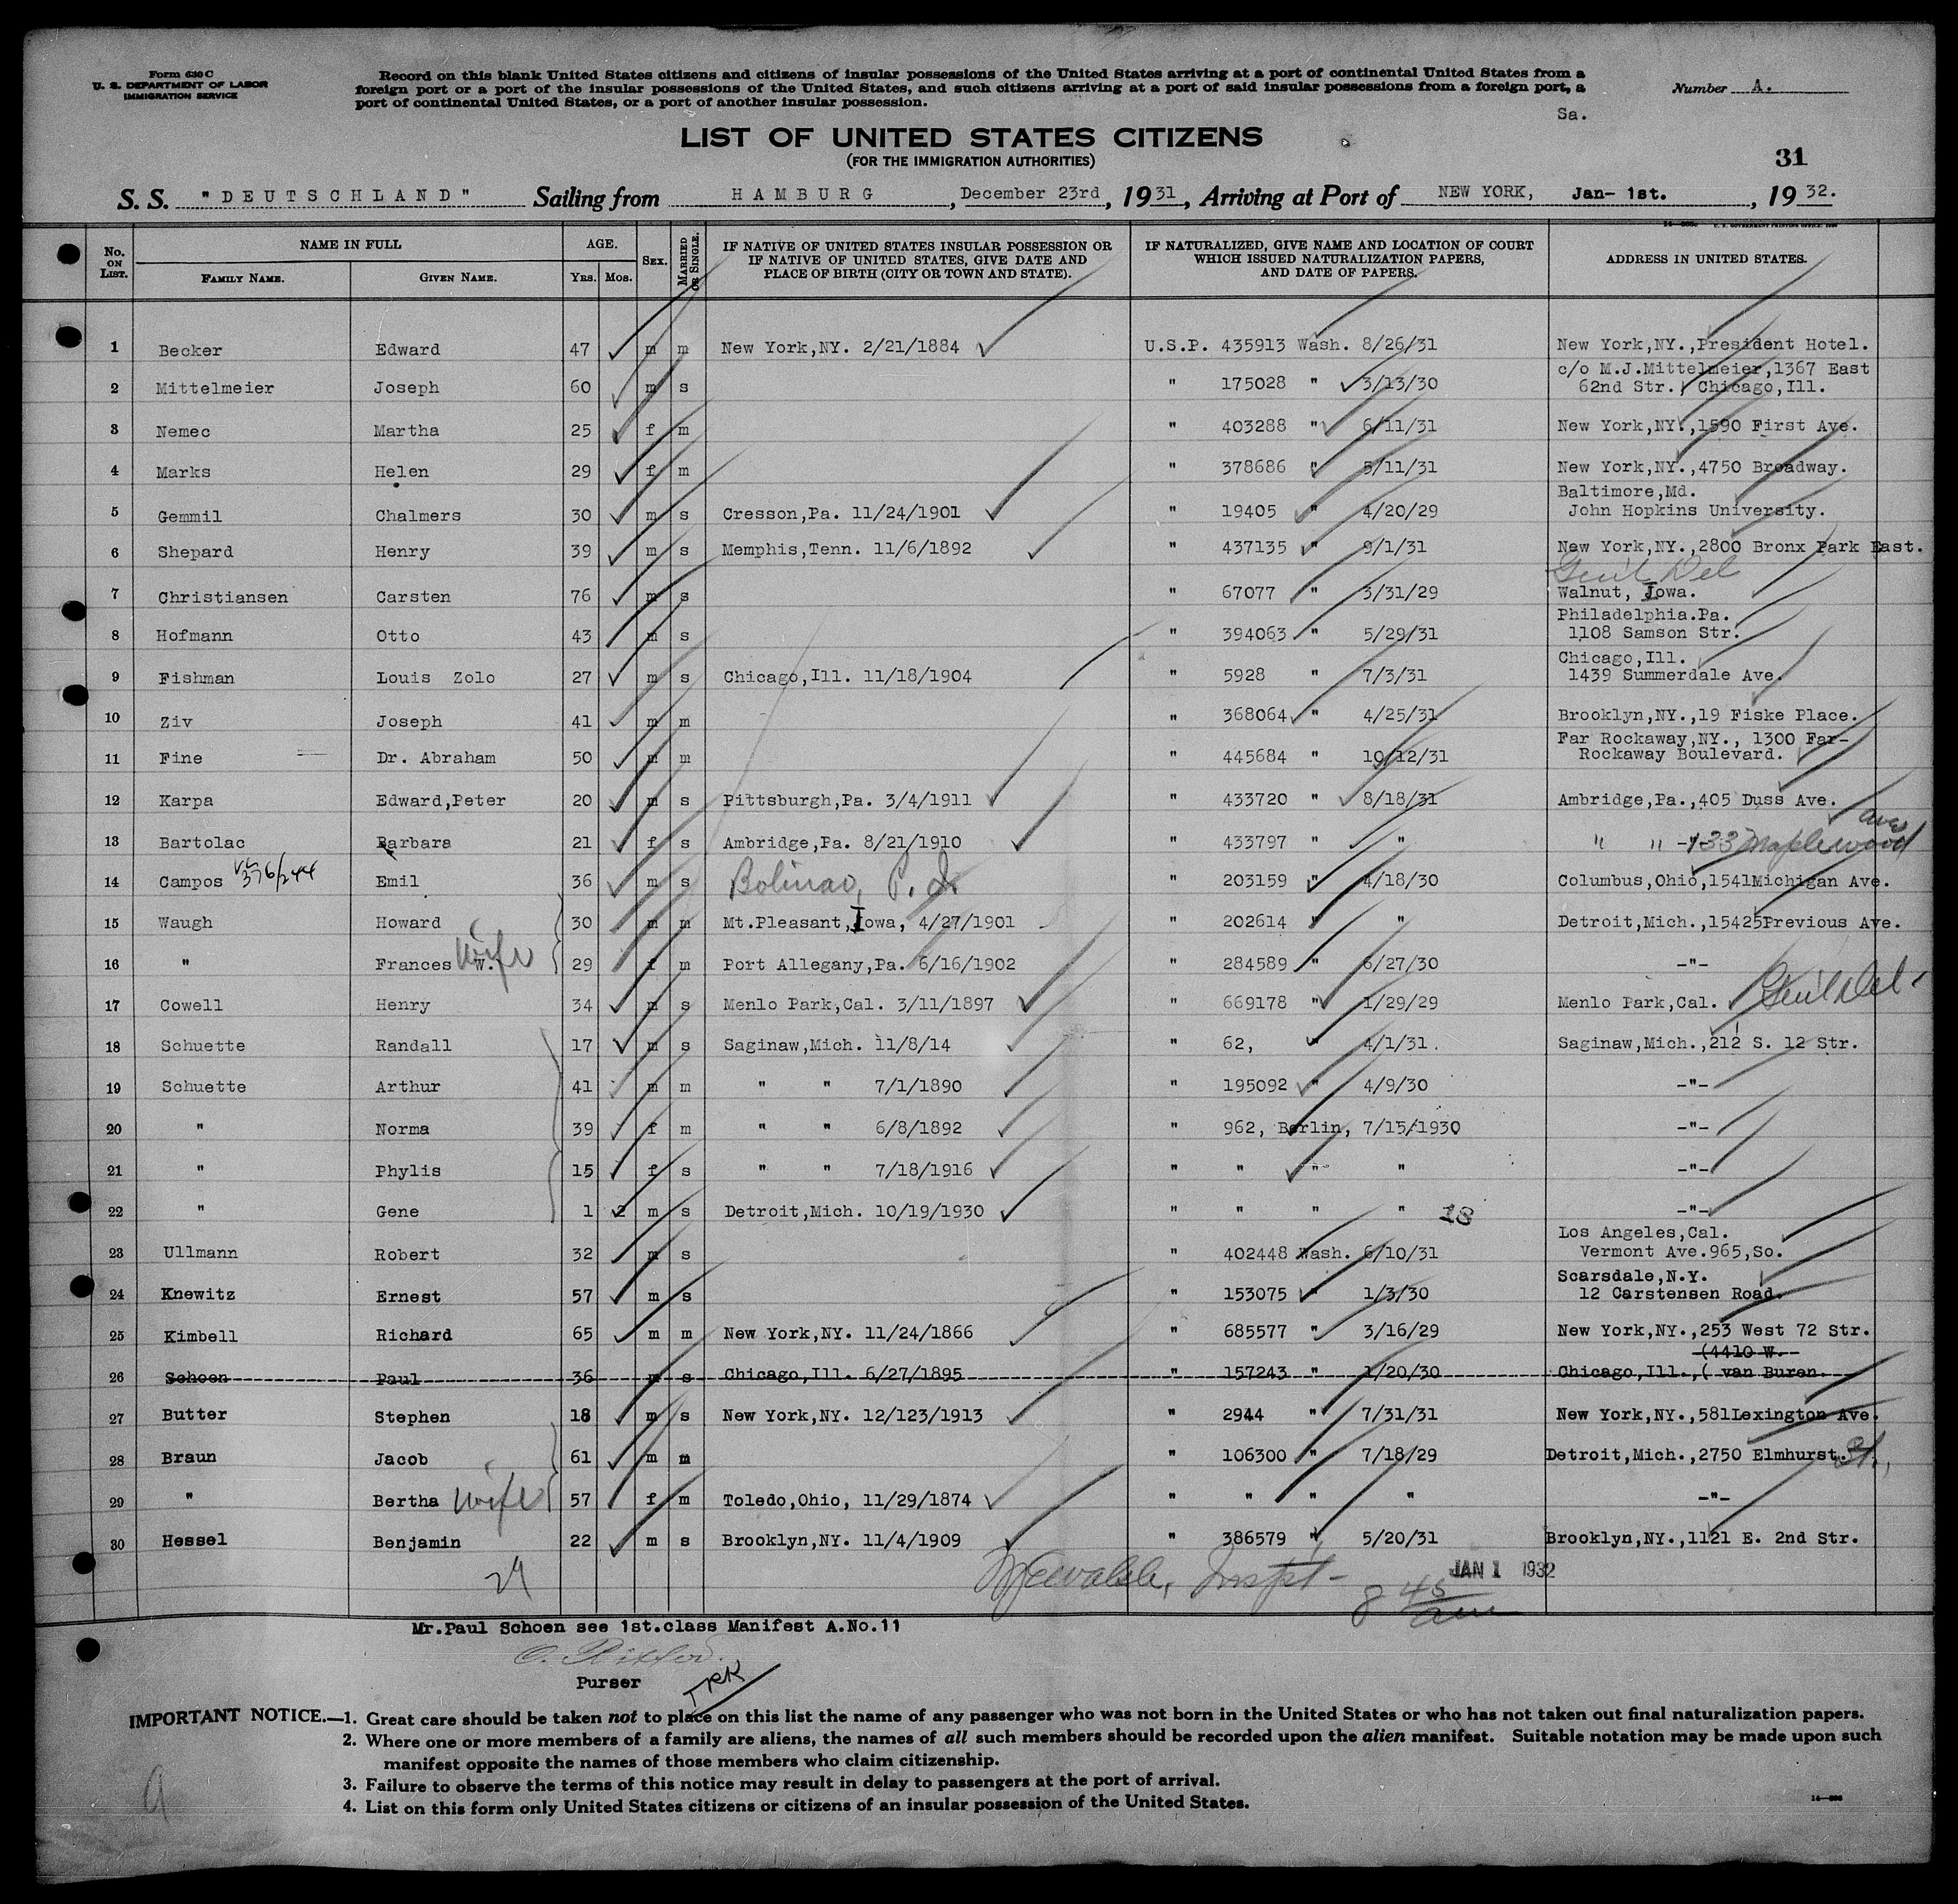 Form 630 C
U. S. DEPARTMENT OF LABOR
IMMIGRATION SERVICE
Record on this blank United States citizens and citizens of insular possessions of the United States arriving at a port of continental United States from a
foreign port or a port of the insular possessions of the United States, and such citizens arriving at a port of said insular possessions from a foreign port, a
port of continental United States, or a port of another insular possession.
Number A.
Sa.
LIST OF UNITED STATES CITIZENS
(FOR THE IMMIGRATION AUTHORITIES)
31
S. S. "DEUTSCHLAND" Sailing from HAMBURG, December 23rd, 1931, Arriving at Port of NEW YORK, Jan- 1st., 1932.
No. ON LIST. NAME IN FULL FAMILY NAME. GIVEN NAME. AGE. YRS. MOS. SEX. MARRIED OR SINGLE. IF NATIVE OF UNITED STATES INSULAR POSSESSION OR IF NATIVE OF UNITED STATES, GIVE DATE AND PLACE OF BIRTH (CITY OR TOWN AND STATE). IF NATURALIZED, GIVE NAME AND LOCATION OF COURT WHICH ISSUED NATURALIZATION PAPERS, AND DATE OF PAPERS. ADDRESS IN UNITED STATES.
1 Becker Edward 47 m m New York,NY. 2/21/1884 U.S.P. 435913 Wash. 8/26/31 New York,NY.,President Hotel.
2 Mittelmeier Joseph 60 m s " 175028 " 3/13/30 c/o M.J.Mittelmeier,1367 East
62nd Str., Chicago,Ill.
3 Nemec Martha 25 f m " 403288 " 6/11/31 New York,NY.,1590 First Ave.
4 Marks Helen 29 f m " 378686 " 5/11/31 New York,NY.,4750 Broadway.
5 Gemmil Chalmers 30 m s Cresson,Pa. 11/24/1901 " 19405 " 4/20/29 Baltimore,Md.
John Hopkins University.
6 Shepard Henry 39 m s Memphis,Tenn. 11/6/1892 " 437135 " 9/1/31 New York,NY.,2800 Bronx Park East.
Gen'l Del
7 Christiansen Carsten 76 m s " 67077 " 3/31/29 Walnut, Iowa.
8 Hofmann Otto 43 m s " 394063 " 5/29/31 Philadelphia.Pa.
1108 Samson Str.
9 Fishman Louis Zolo 27 m s Chicago,Ill. 11/18/1904 " 5928 " 7/3/31 Chicago,Ill.
1439 Summerdale Ave.
10 Ziv Joseph 41 m m " 368064 " 4/25/31 Brooklyn,NY.,19 Fiske Place.
11 Fine Dr. Abraham 50 m m " 445684 " 10/12/31 Far Rockaway,NY., 1300 Far-
Rockaway Boulevard.
12 Karpa Edward,Peter 20 m s Pittsburgh,Pa. 3/4/1911 " 433720 " 8/18/31 Ambridge,Pa.,405 Duss Ave.
13 Bartolac Barbara 21 f s Ambridge,Pa. 8/21/1910 " 433797 " " " " -"- 133 Maplewood Ave
14 Campos 376/244 Emil 36 m s Bolinao, P. I. " 203159 " 4/18/30 Columbus,Ohio,1541Michigan Ave.
15 Waugh Howard 30 m m Mt.Pleasant,Iowa, 4/27/1901 " 202614 " " Detroit,Mich.,15425Previous Ave.
16 " Frances W. wife 29 f m Port Allegany,Pa. 6/16/1902 " 284589 " 6/27/30 -"-
17 Cowell Henry 34 m s Menlo Park,Cal. 3/11/1897 " 669178 " 1/29/29 Menlo Park,Cal. Gen'l Del.
18 Schuette Randall 17 m s Saginaw,Mich. 11/8/14 " 62, " 4/1/31. Saginaw,Mich.,212 S. 12 Str.
19 Schuette Arthur 41 m m " " 7/1/1890 " 195092 " 4/9/30 -"-
20 " Norma 39 f m " " 6/8/1892 " 962, Berlin, 7/15/1930 -"-
21 " Phylis 15 f s " " 7/18/1916 " " " " -"-
22 " Gene 1 2 m s Detroit,Mich. 10/19/1930 " " " " 18 -"-
23 Ullmann Robert 32 m s " 402448 Wash. 6/10/31 Los Angeles,Cal.
Vermont Ave.965,So.
24 Knewitz Ernest 57 m s " 153075 " 1/3/30 Scarsdale,N.Y.
12 Carstensen Road.
25 Kimbell Richard 65 m m New York,NY. 11/24/1866 " 685577 " 3/16/29 New York,NY.,253 West 72 Str.
26 Schoen Paul 36 m s Chicago,Ill. 6/27/1895 " 157243 " 1/20/30 (4410 W.
Chicago,Ill.,( van Buren.
27 Butter Stephen 18 m s New York,NY. 12/123/1913 " 2944 " 7/31/31 New York,NY.,581Lexington Ave.
28 Braun Jacob 61 m m " 106300 " 7/18/29 Detroit,Mich.,2750 Elmhurst. St.,
29 " Bertha wife 57 f m Toledo,Ohio, 11/29/1874 " " " " -"-
30 Hessel Benjamin 22 m s Brooklyn,NY. 11/4/1909 " 386579 " 5/20/31 Brooklyn,NY.,1121 E. 2nd Str.
29 Inspt- 8 45 am JAN 1 1932
Mr.Paul Schoen see 1st.class Manifest A.No.11
Purser
IMPORTANT NOTICE.—1. Great care should be taken not to place on this list the name of any passenger who was not born in the United States or who has not taken out final naturalization papers.
2. Where one or more members of a family are aliens, the names of all such members should be recorded upon the alien manifest. Suitable notation may be made upon such
manifest opposite the names of those members who claim citizenship.
3. Failure to observe the terms of this notice may result in delay to passengers at the port of arrival.
4. List on this form only United States citizens or citizens of an insular possession of the United States.